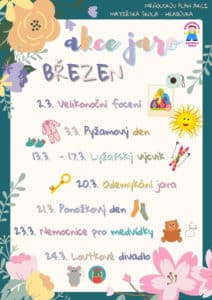 MRŇOUSKŮV PLÁN AKCÍ
MATEŘSKÁ ŠKOLA - HRABŮVKA
akce jaro
BŘEZEN
2.3. Velikonoční focení
3.3. Pyžamový den
13.3. - 17.3. Lyžařský výcvik
20.3. Odemykání jara
21.3. Ponožkový den
23.3. Nemocnice pro medvídky
24.3. Loutkové divadlo